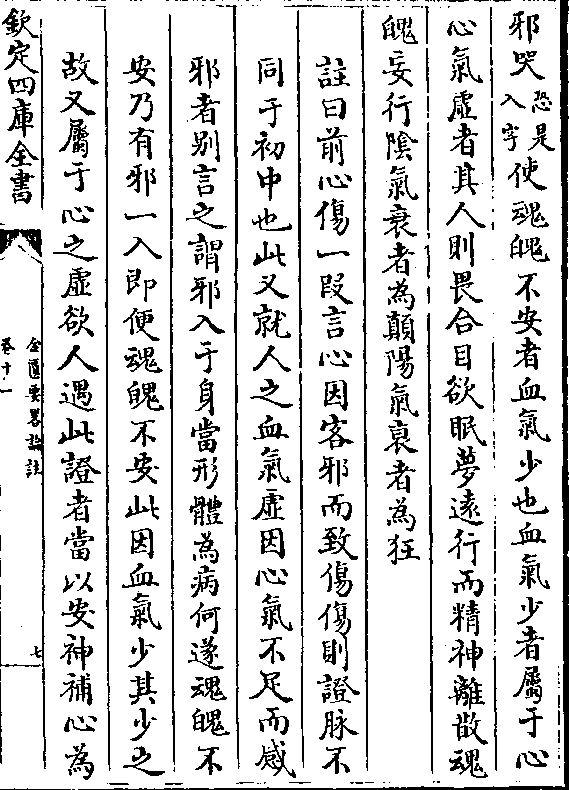 邪哭恐是入字使魂魄不安者血氣少也血氣少者屬于心
心氣虛者其人則畏合目欲眠夢遠行而精神離散魂
魄妄行陰氣衰者為顛陽氣衰者為狂
註曰前心傷一段言心因客邪而致傷傷則證脉不
同于初中也此又就人之血氣虛因心氣不足而感
邪者别言之謂邪入于身當形體為病何遂魂魄不
安乃有邪一入即便魂魄不安此因血氣少其少之
故又屬于心之虛欲人遇此證者當以安神補心為
欽定四庫全書
金匱要畧論註
卷十一
七